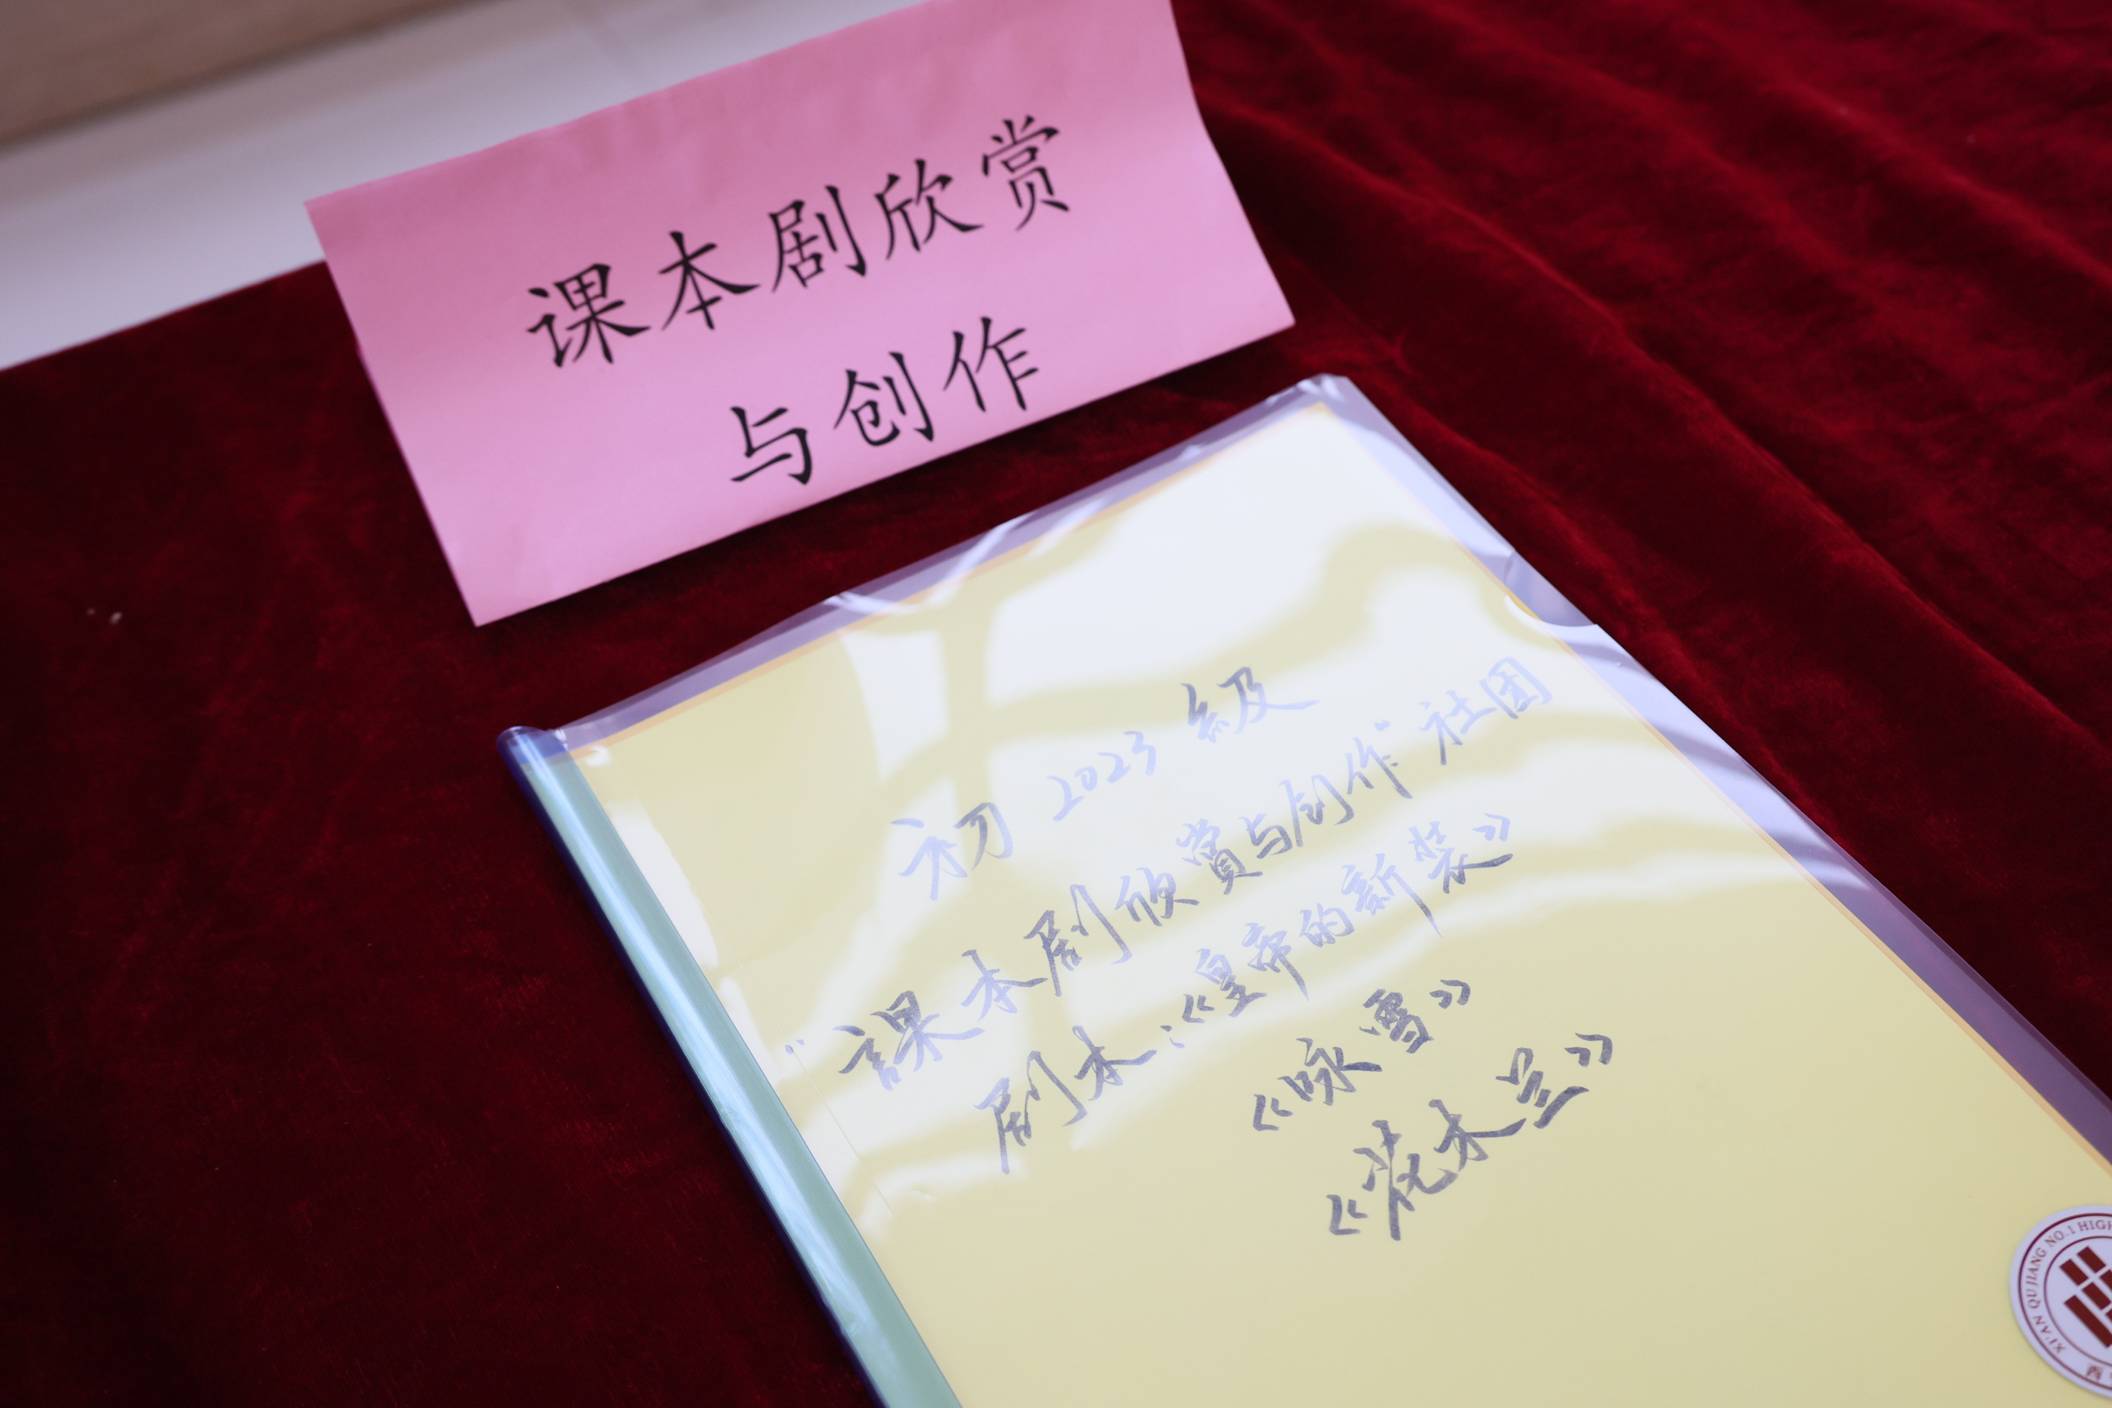 课本剧欣赏
与创作
初2023级
"課本剧欣賞与创作"社团
剧本:《皇帝的新装》
《咏雪》
《花木兰》
XI'AN QUJIANG NO.1 HIGH
西